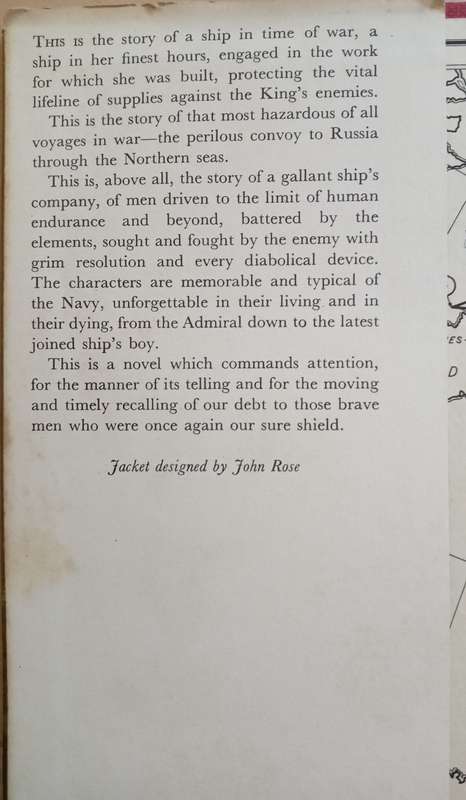 THIS IS the story of a ship in time of war, a
ship in her finest hours, engaged in the work
for which she was built, protecting the vital
lifeline of supplies against the King's enemies.
This is the story of that most hazardous of all
voyages in war—the perilous convoy to Russia
through the Northern seas.
This is, above all, the story of a gallant ship's
company, of men driven to the limit of human
endurance and beyond, battered by the
elements, sought and fought by the enemy with
grim resolution and every diabolical device.
The characters are memorable and typical of
the Navy, unforgettable in their living and in
their dying, from the Admiral down to the latest
joined ship's boy.
This is a novel which commands attention,
for the manner of its telling and for the moving
and timely recalling of our debt to those brave
men who were once again our sure shield.
Jacket designed by John Rose